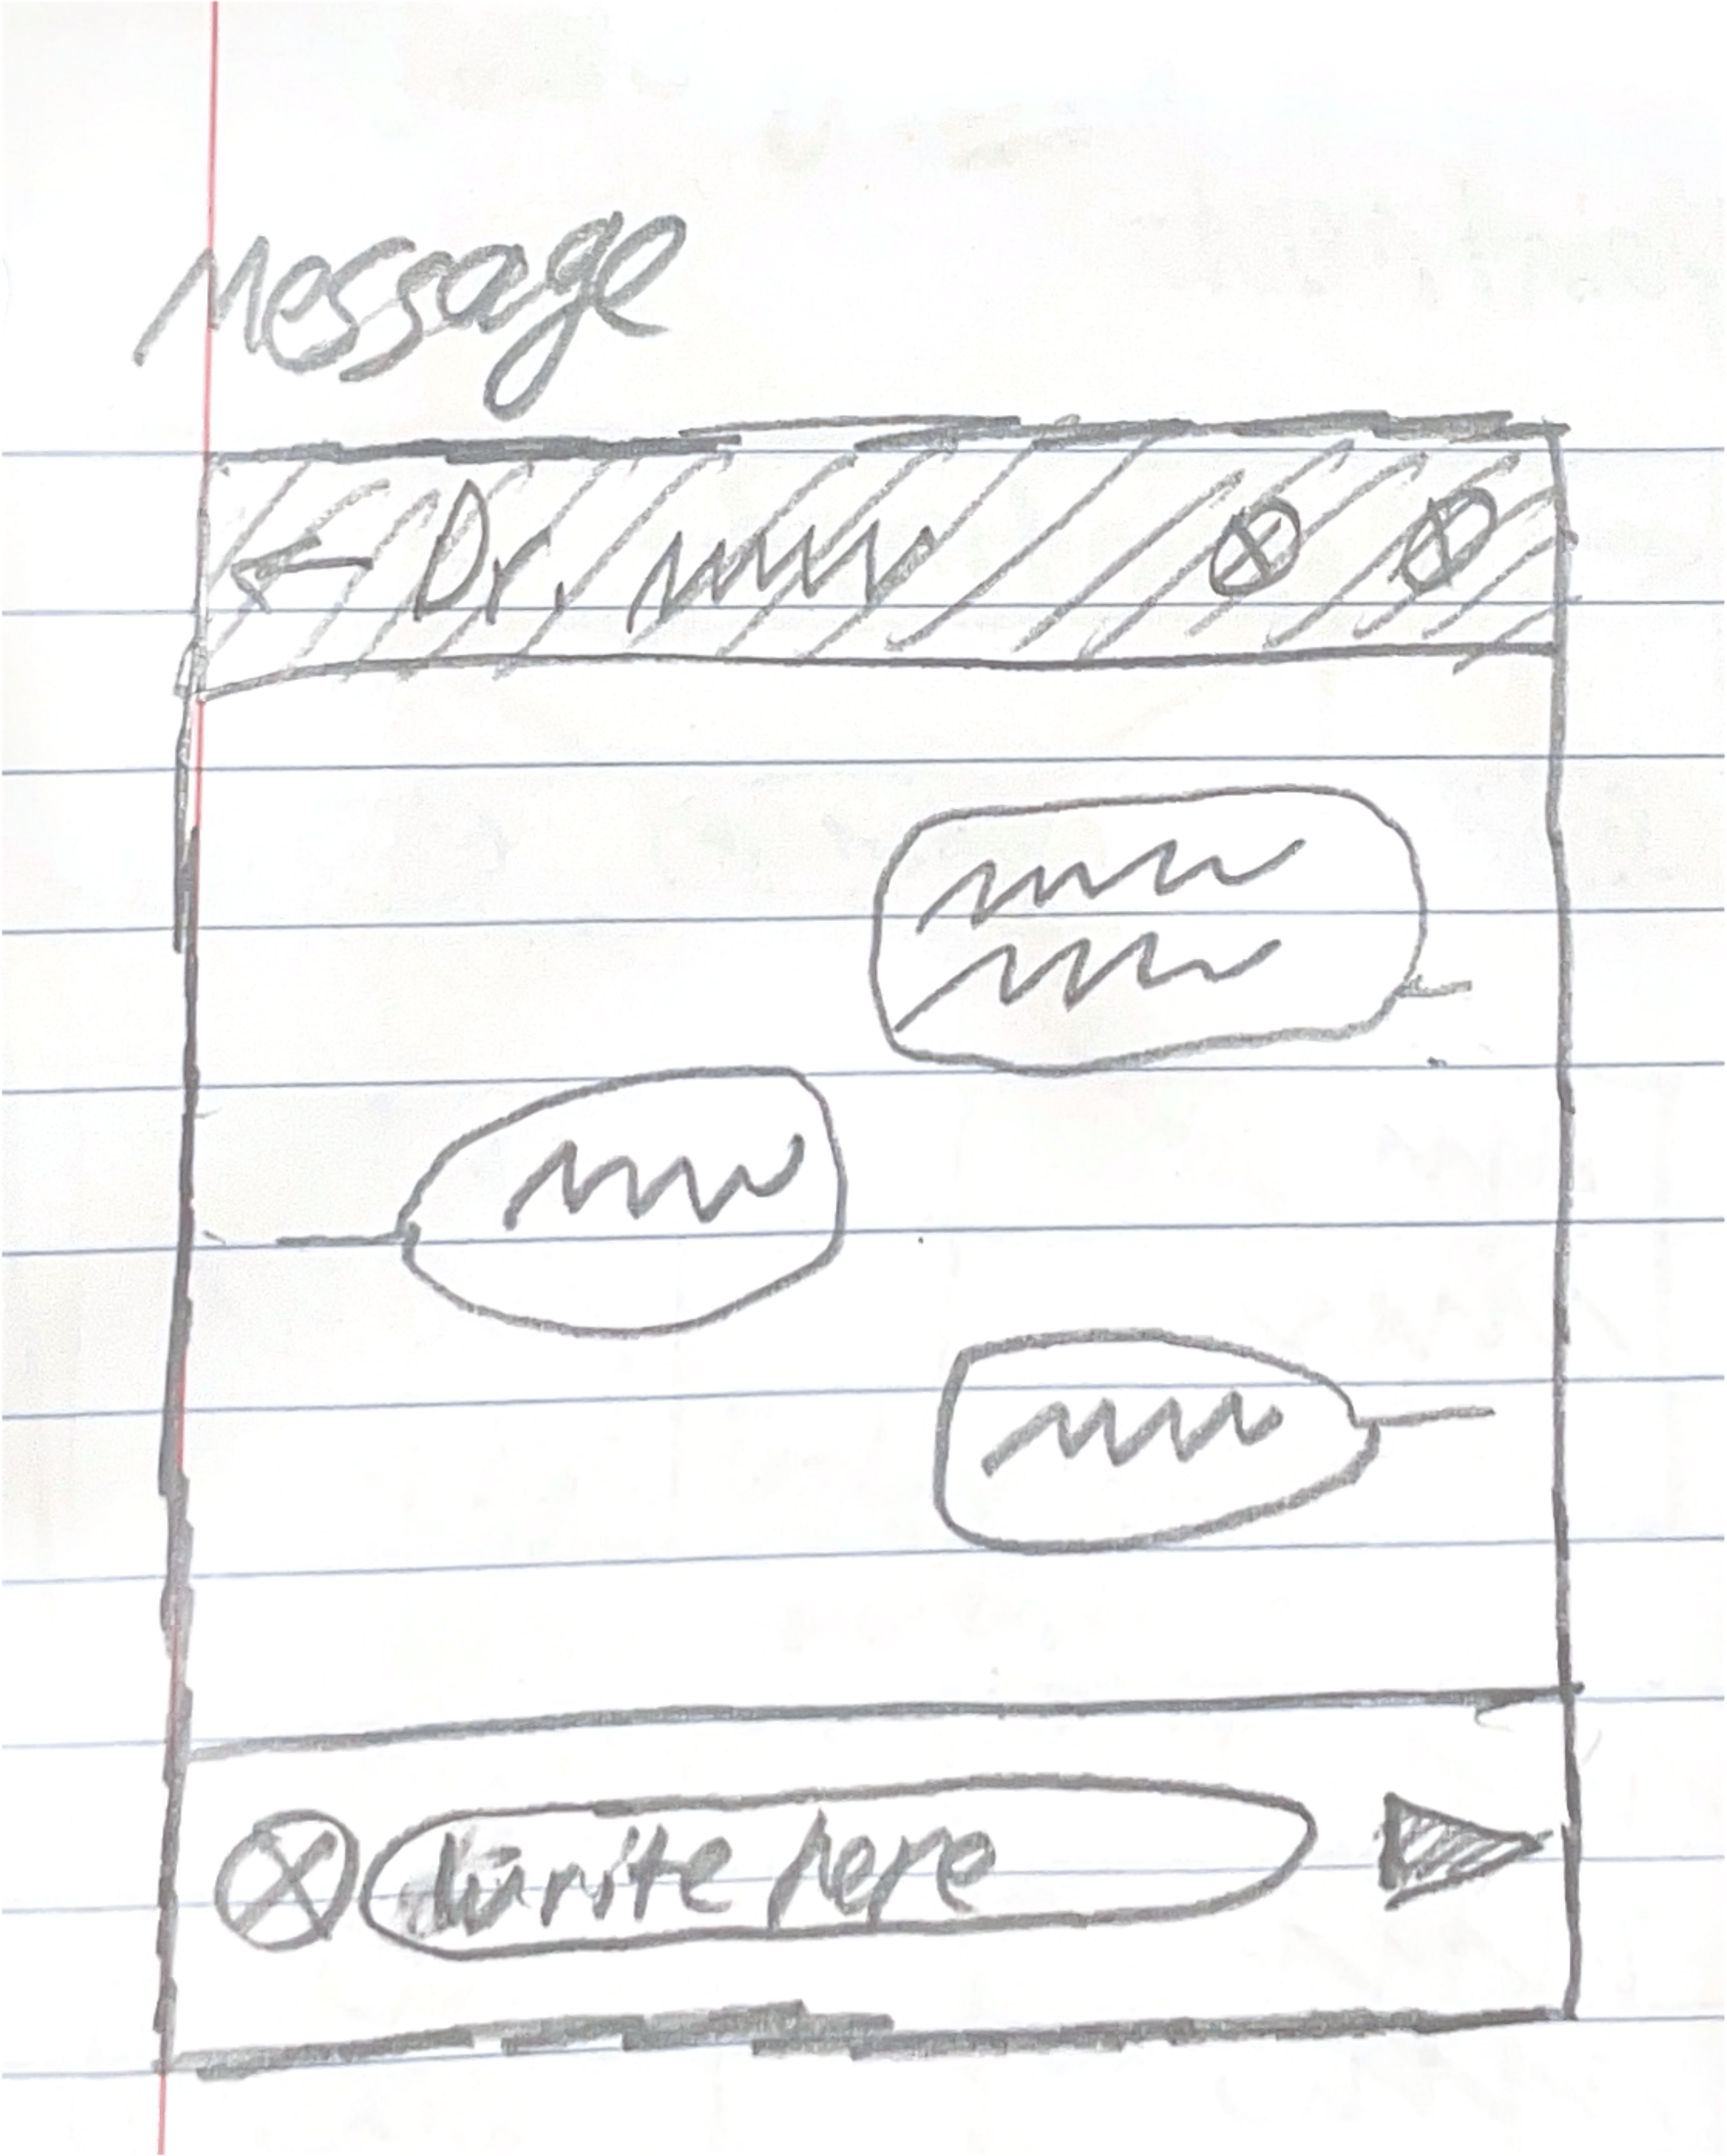 Message
Dr.
Write here